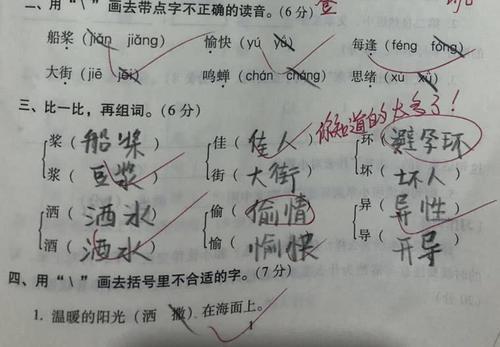 二、用"\"画去带点字不正确的读音。(6分)
船桨(jiān jiǎng) 愉快(yú yǔ) 每逢(féng fōng)
大街(jiē jēi) 鸣蝉(chán cháng) 思绪(xù xǜ)
三、比一比,再组词。(6分)
你知道的太多了!
桨(船桨) 佳(佳人) 环(避孕环)
浆(豆浆) 街(大街) 坏(坏人)
洒(洒水) 偷(偷情) 异(异性)
洒(洒水) 愉(愉快) 导(开导)
四、用"\"画去括号里不合适的字。(7分)
1. 温暖的阳光(洒 撒)在海面上。